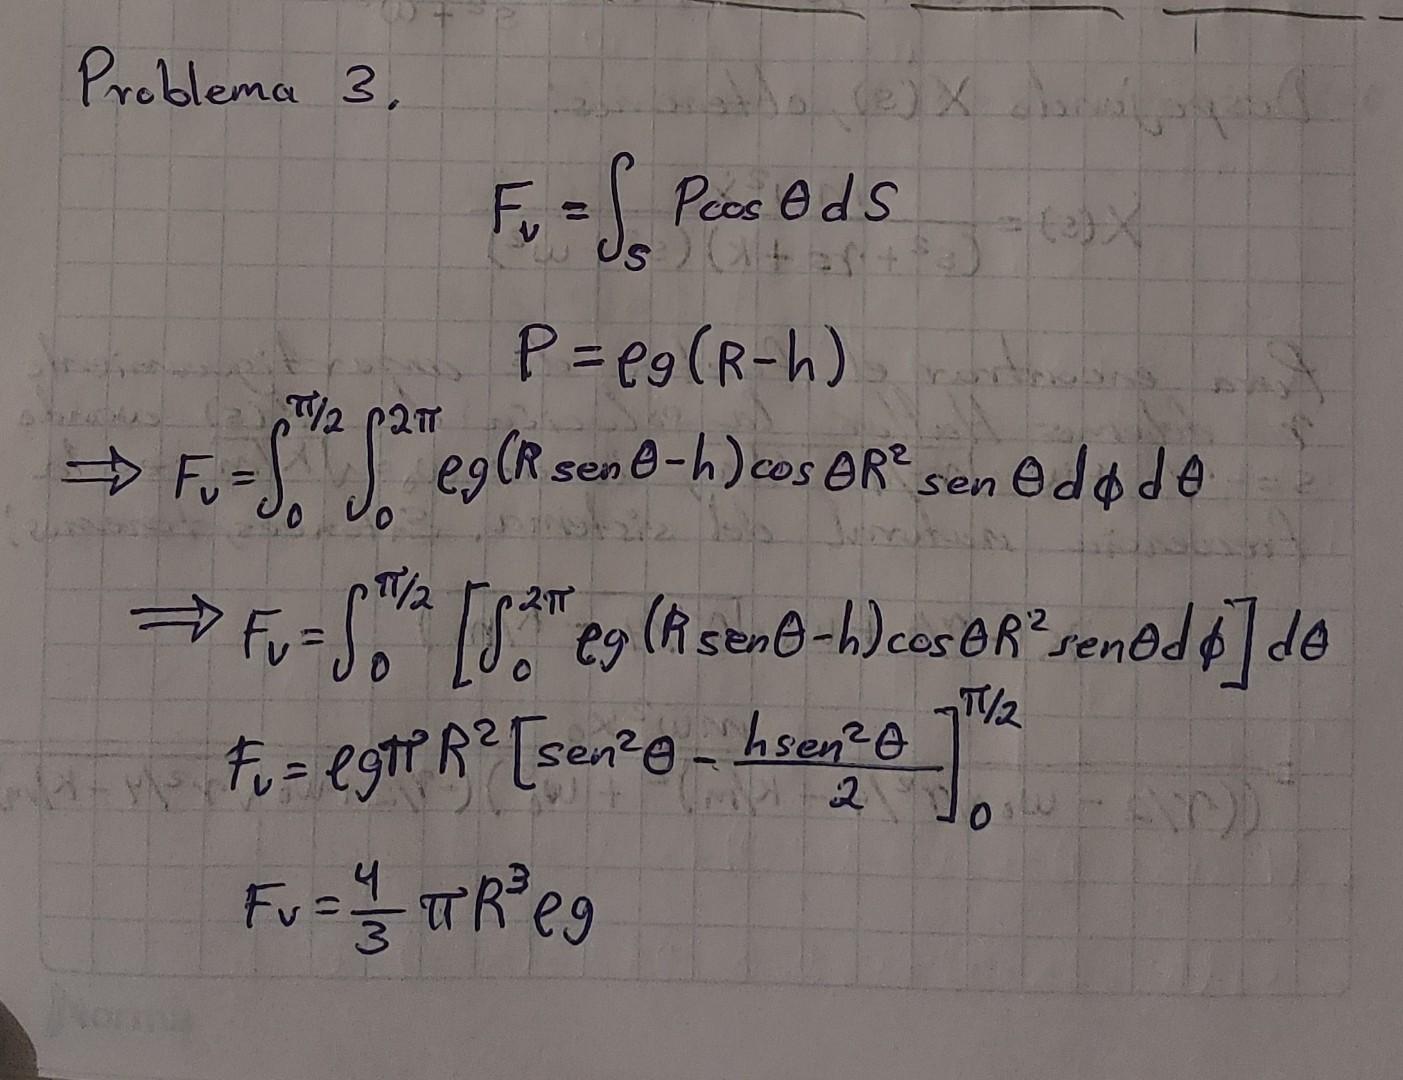 Problema 3.
F_v = ∫_S P cos θ dS
P = ρg(R-h)
⇒ F_v = ∫_0^{π/2} ∫_0^{2π} ρg(R sen θ-h) cos θR² sen θ dϕ dθ
⇒ F_v = ∫_0^{π/2} [∫_0^{2π} ρg (R senθ-h) cos θR² senθdϕ] dθ
F_v = ρgπR² [sen²θ - \frac{h sen²θ}{2}]_0^{π/2}
F_v = \frac{4}{3} πR³ρg